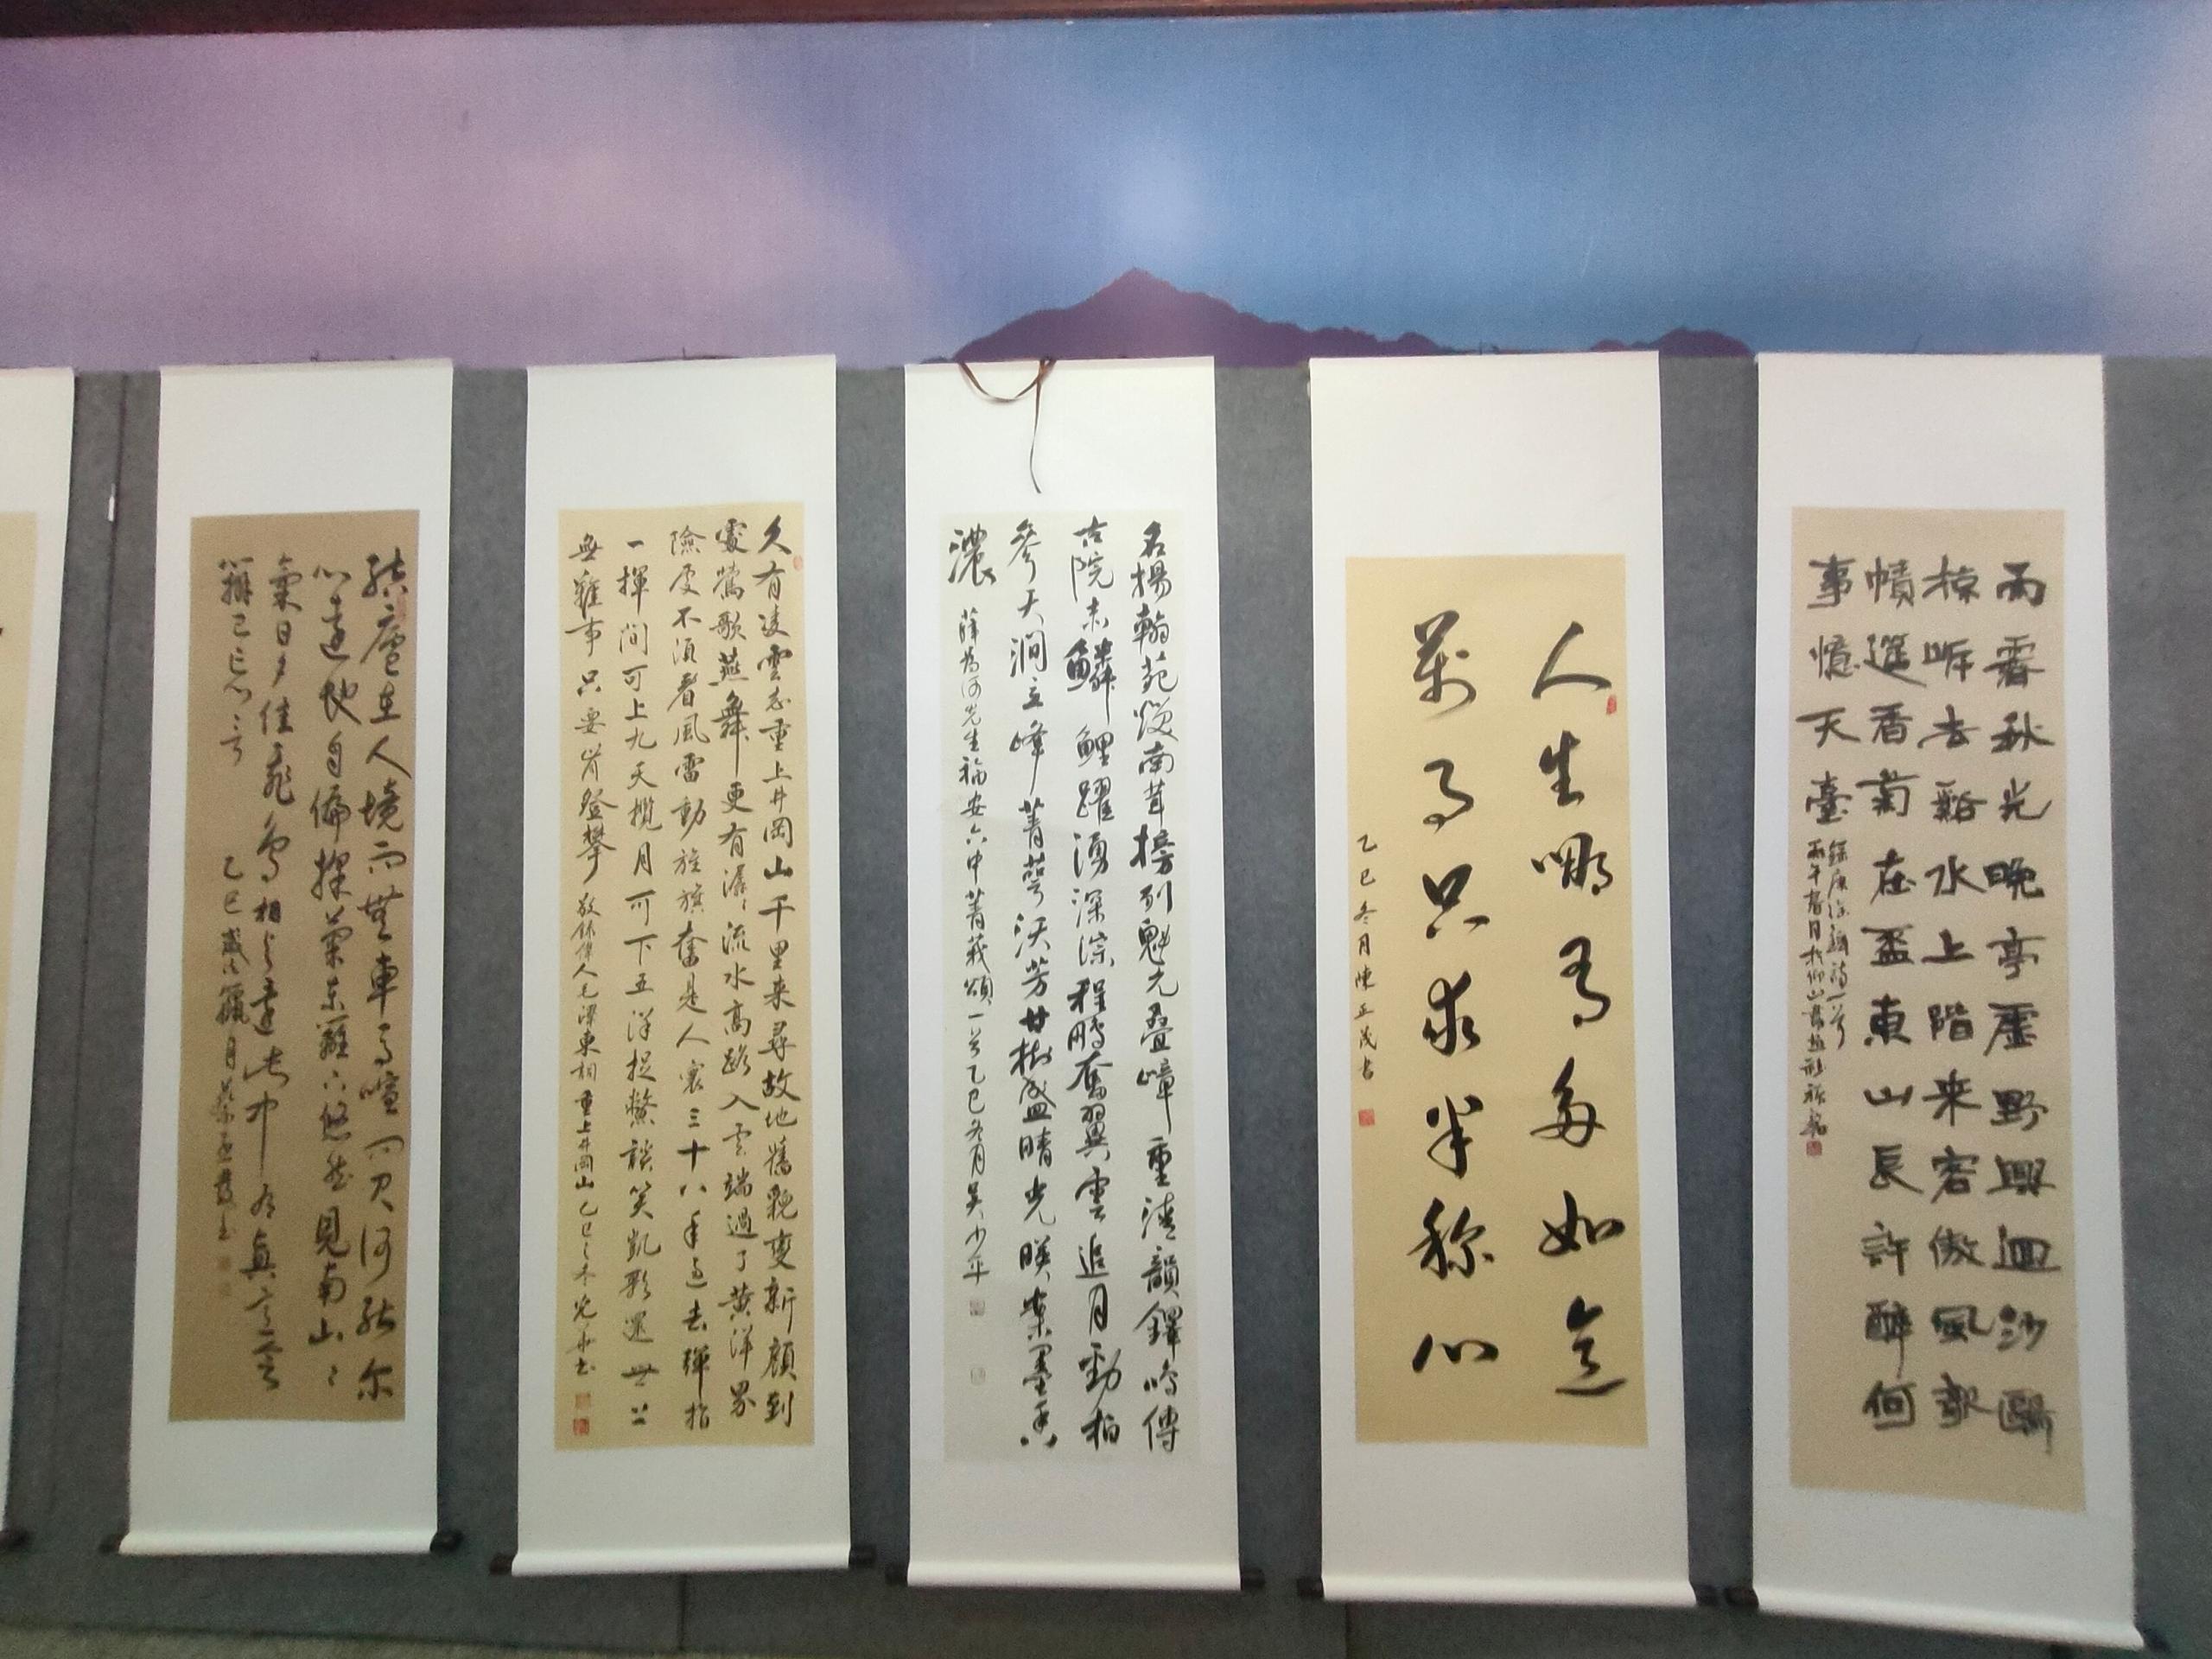 雨霽秋光晚亭虛野興迴沙鷗
掠岸去谿水上階来客傲風欹
幘選香菊在盃東山長許醉何
事憶天臺
詩一首
丙午春月於仰山書
人生哪有多如意
萬事只求半称心
乙巳冬月陳正茂書
名揚翰苑南茸榜列魁元疊嶂重清韻鐸鳴傳
古院赤鱗鯉躍湧深淙程鵬奮翼雲追月勁柏
參天澗立峰菁莪沃芳廿樹盛晴光映案墨香
濃
薛為河先生福安六中菁莪頌一首乙巳冬月吳少平
久有凌雲志重上井岡山千里来尋故地舊貌變新顏到
處鶯歌燕舞更有潺潺流水高路入雲端過了黃洋界
險處不須看風雷動旌旗奮是人寰三十八年過去彈指
一揮間可上九天攬月可下五洋捉鱉談笑凱歌還世上
無難事只要肯登攀
敬錄偉人毛澤東詞重上井岡山乙巳之冬光華書
結廬在人境而無車馬喧問君何能尔
心遠地自偏採菊東籬下悠然見南山山
氣日夕佳飛鳥相與還此中有真意欲
辯已忘言